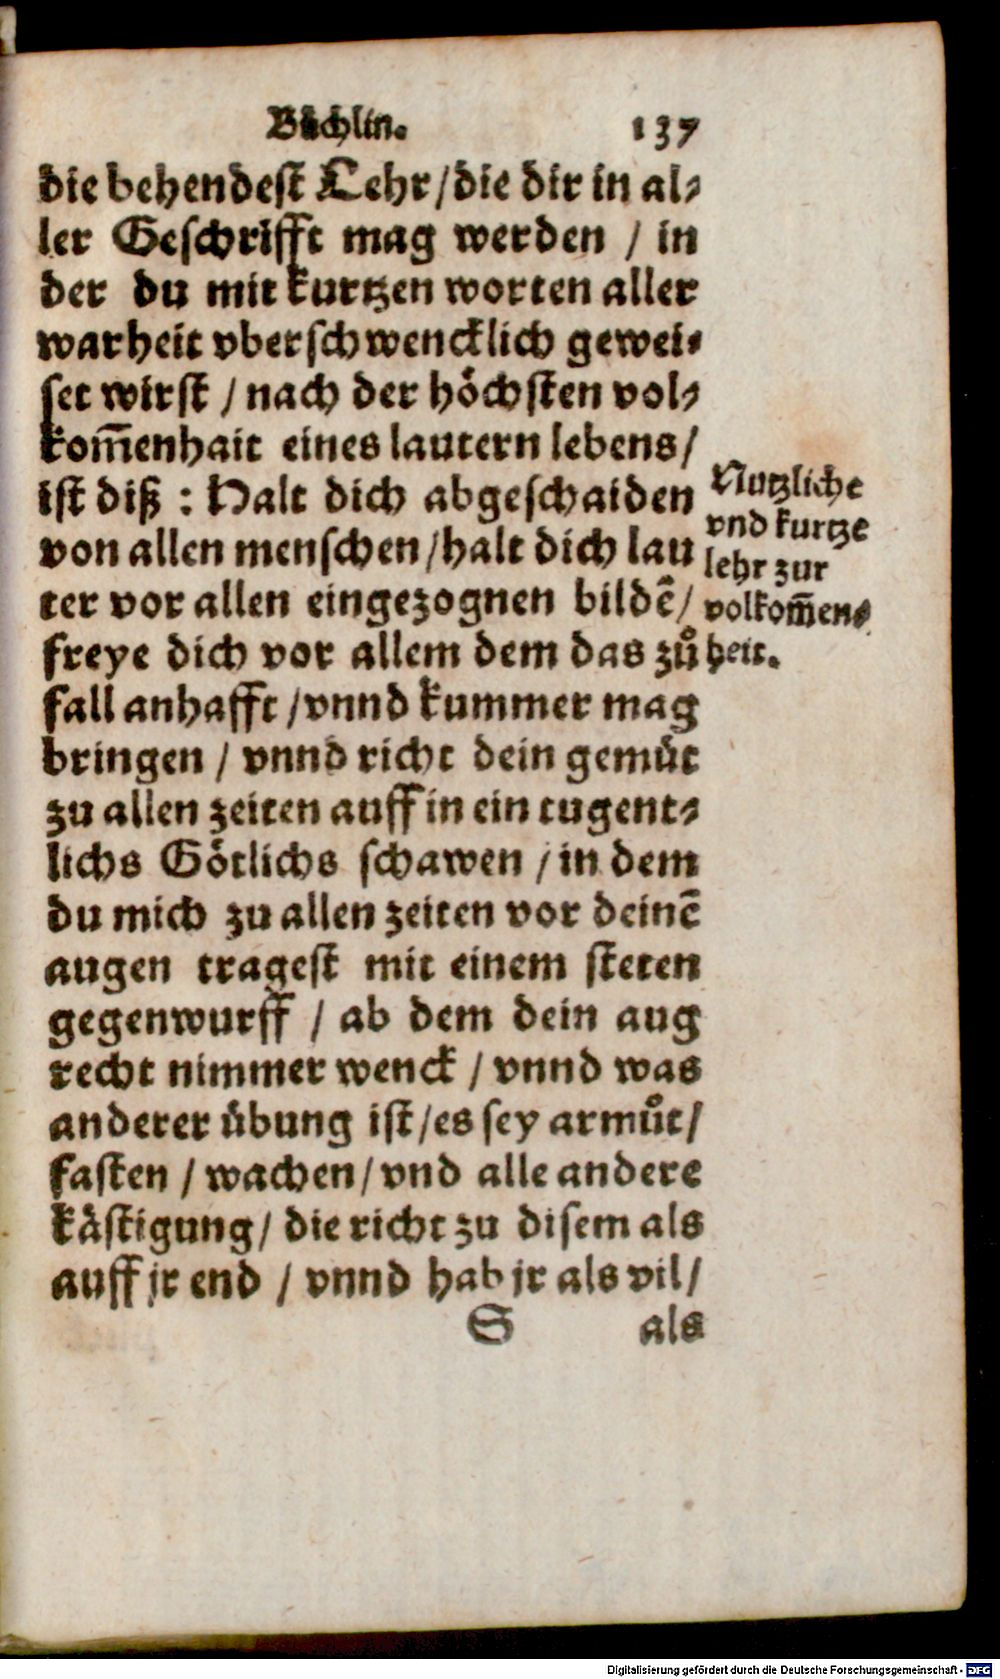 Bůchlin. 137
die behendest Lehr / die dir in al⸗
ler Geschrifft mag werden / in
der du mit kurtzen worten aller
warheit vberschwencklich gewei⸗
set wirst / nach der höchsten vol⸗
kom̃enhait eines lautern lebens /
ist diß : Halt dich abgeschaiden
von allen menschen / halt dich lau
ter vor allen eingezognen bildẽ /
freye dich vor allem dem das zů
fall anhafft / vnnd kummer mag
bringen / vnnd richt dein gemůt
zu allen zeiten auff in ein tugent⸗
lichs Götlichs schawen / in dem
du mich zu allen zeiten vor deinẽ
augen tragest mit einem steten
gegenwurff / ab dem dein aug
recht nimmer wenck / vnnd was
anderer übung ist / es sey armůt /
fasten / wachen / vnd alle andere
kästigung / die richt zu disem als
auff jr end / vnnd hab jr als vil /
S als
Nutzliche
vnd kurtze
lehr zur
volkom̃en⸗
heit.
Digitalisierung gefördert durch die Deutsche Forschungsgemeinschaft - DFG